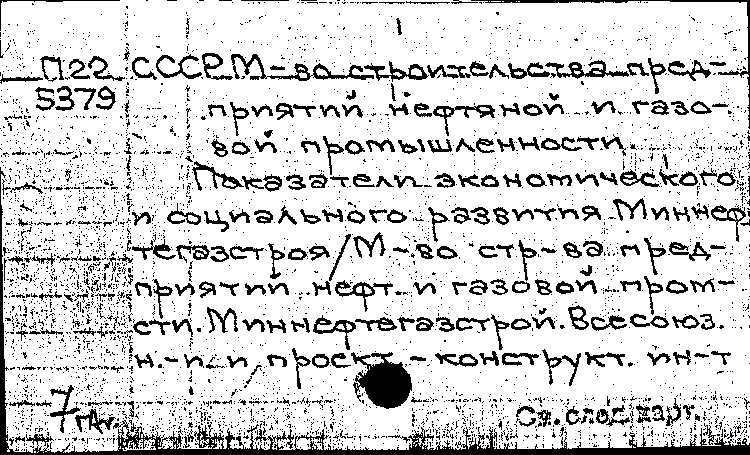 П22 СССР. М-во строительства пред-
5379 приятий нефтяной и газо-
вой промышленности.
Показатели экономического
и социального развития Миннеф
тегазстроя/М-во стр-ва пред-
приятий нефт. и газовой пром-
сти. Миннефтегазстрой. Всесоюз.
н.-и. и проект.-конструкт. ин-т
См. след. карт.